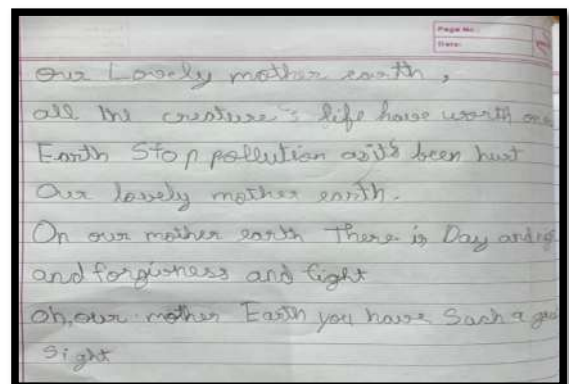 Page No:
Date:
Our Lovely mother earth,
all the creature's life have worth on
Earth Stop pollution as it's been hurt
Our lovely mother earth.
On our mother earth There is Day and
and forgivness and light
Oh, our mother Earth you have Such a
Sight